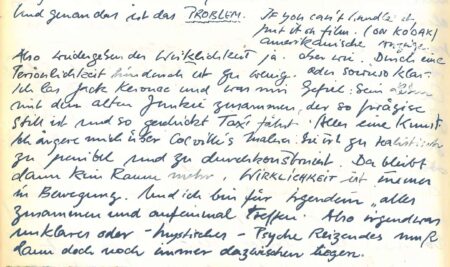 Und genau das ist das PROBLEM.
If you can't handle it
put it on film. (ON KODAK)
amerikanische Anzeige
Also wiedergeben der Wirklichkeit ja. aber wie. Durch eine
Persönlichkeit hindurch ist zu wenig. oder sowieso klar.
Ich las Jack Kerouac und was mir gefiel. Sein
mit dem alten Junkie zusammen, der so präzise
still ist und so geschickt Taxi fährt. Alles eine Kunst.
Ich ärgere mich über Colville's Malerei. Sie ist zu realistisch
zu penibel und zu durchkonstruiert. Da bleibt
dann kein Raum mehr. WIRKLICHKEIT ist immer
in Bewegung. Und ich bin für irgendein "alles
zusammen und auf einmal Treffen. Also irgendwas
unklares oder - mystisches - Psyche Reizendes muß
dann doch noch immer dazwischen liegen.